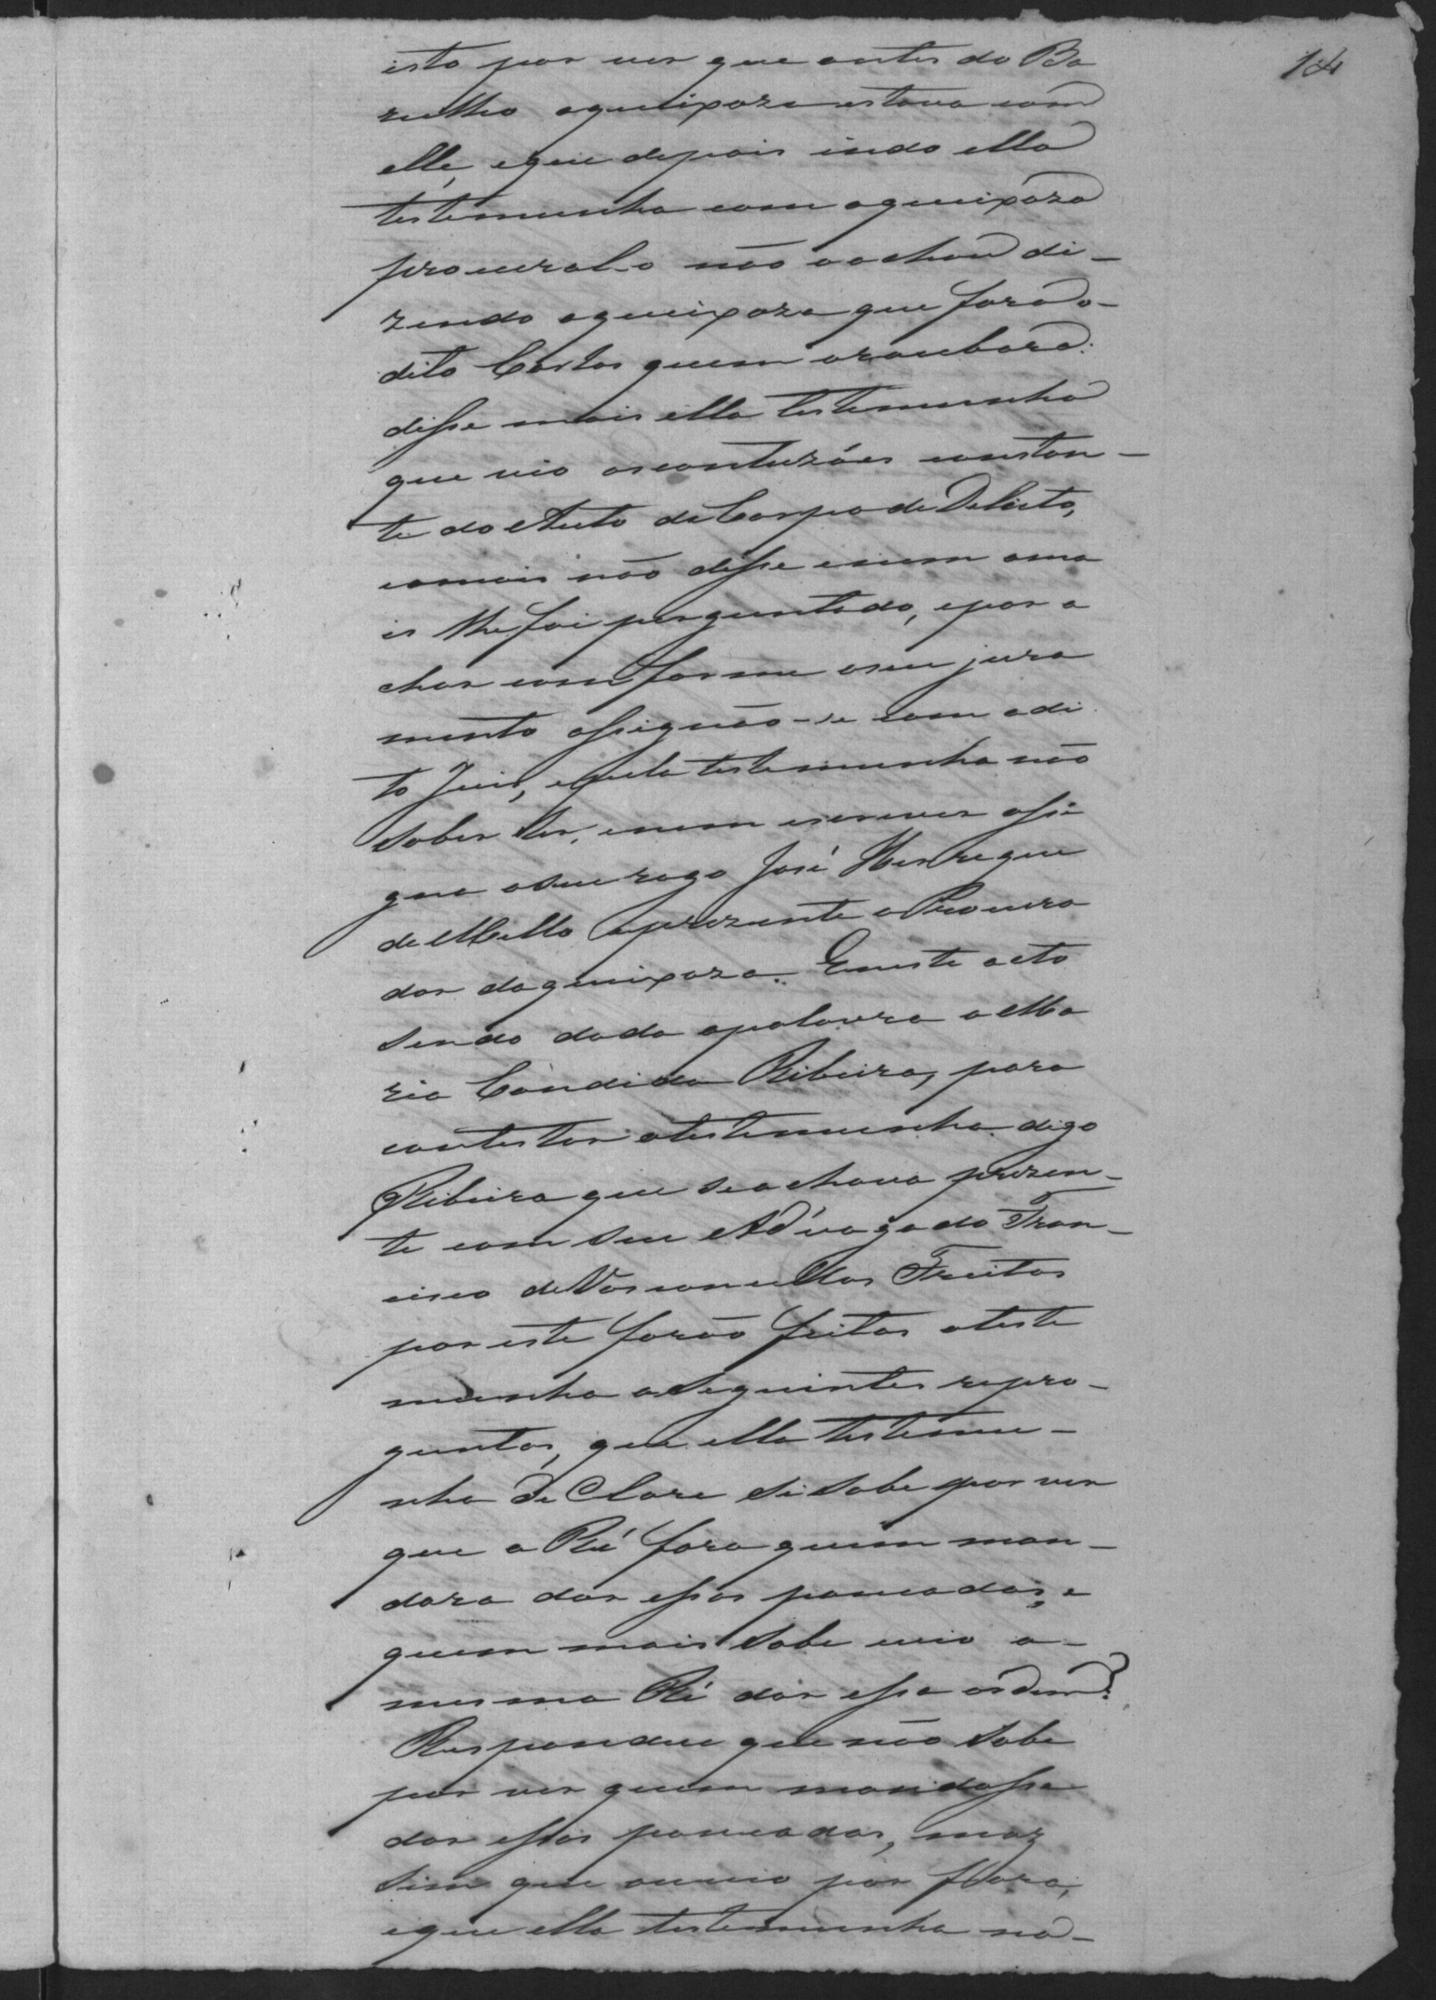 14
isto por ver que antes do Ba
rulho aqueixoza estava com
elle, eque depois indo ella
testemunha com aqueixoza
procural-o não o achou di-
zendo aqueixoza que fora o-
dito Carlos quem aroubara.
disse mais ella testemunha
que vio ascontuzões constan-
te do Auto de Corpo de Delicto,
eomais não disse enem oma
is lhe foi perguntado, epor a
char comforme oseu jura
mento assignão-se com odi
to Juis, epela testemunha não
saber ler, enem escrever assi
gna aseu rogo José Henreque
de Mello eprezente o Procura
dor daqueixoza. Eneste acto
sendo dada apalavra a Ma
ria Candida Ribeira, para
contestar atestemunha digo
Ribeira que se achava prezen-
te com seu Advogado Fran-
cisco de Vasconcellos Freitas
por este forão feitas ateste
munha asseguintes repre-
guntas, que ella testemu-
nha de Clare si sabe por ver
que a Ré fora quem man-
dara dar essas pancadas, e
quem mais sabe evio a-
mesma Ré dar essa ordem?
Respondeu que não sabe
por ver quem mandasse
dar essas pancadas, maz
sim que ouvio por fóra,
eque ella testemunha nã-